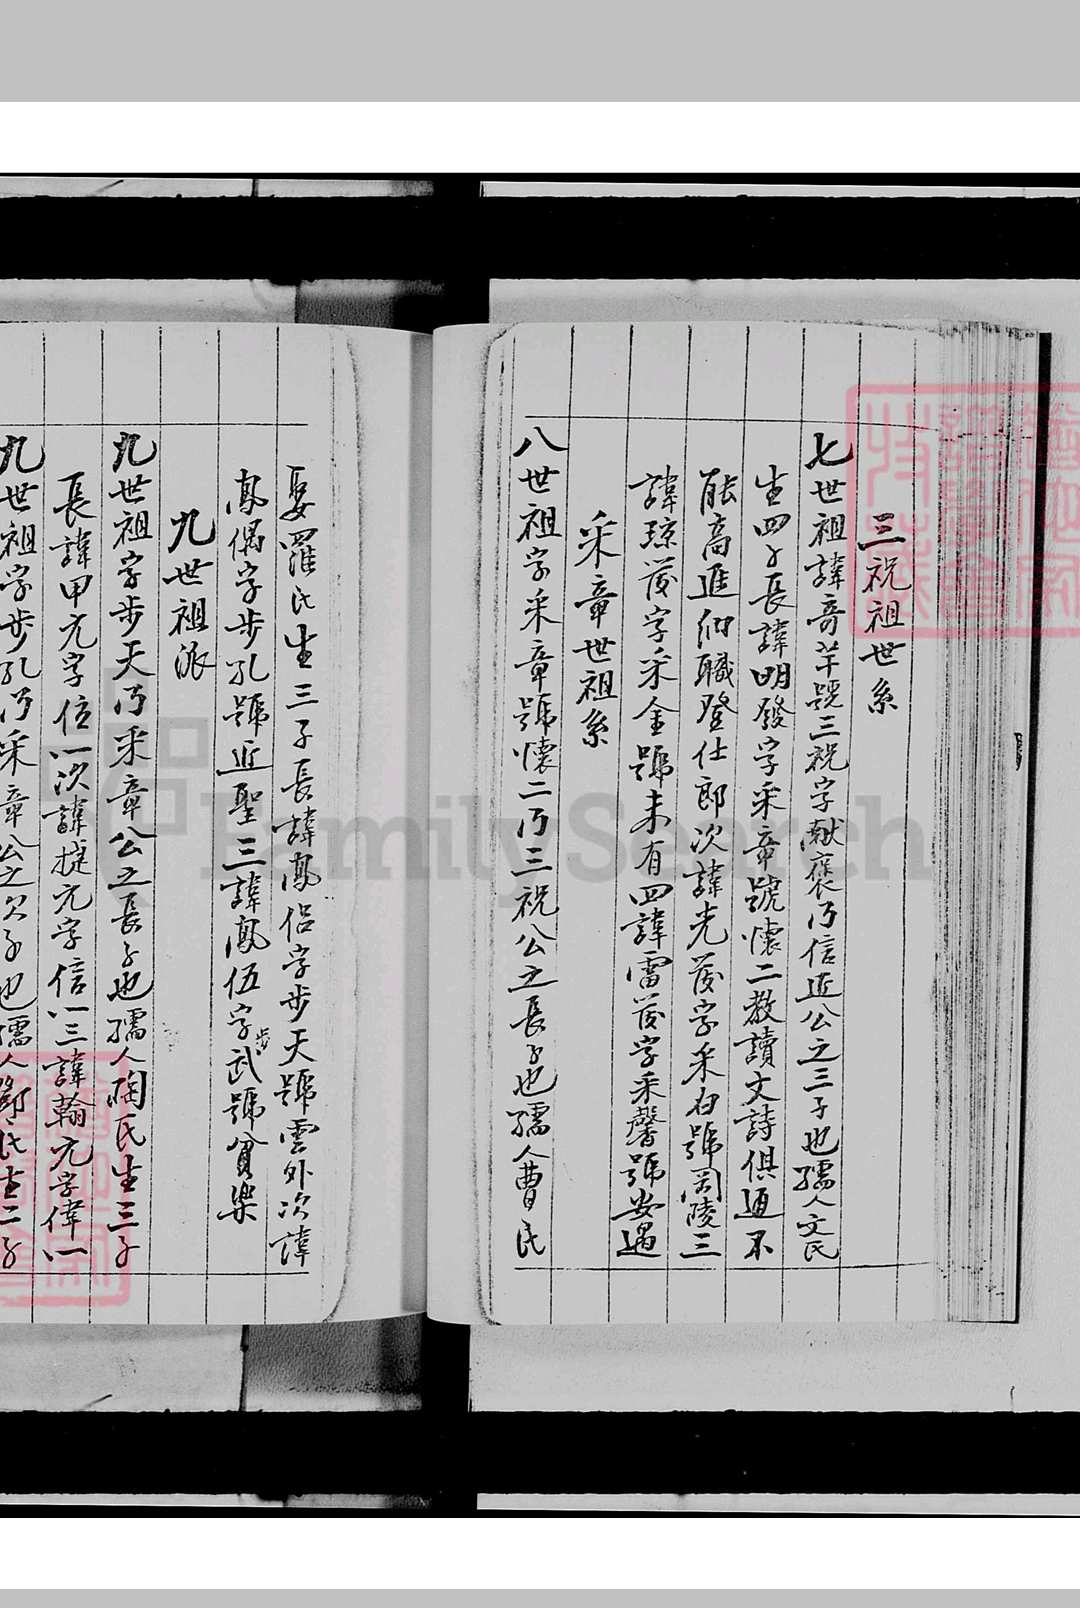 三祝祖世系
七世祖諱奇芊號三祝字献褒乃信近公之三子也孺人文氏
生四子長諱明發字采章號懷二教讀文詩俱通不
能高進納職登仕郎次諱光發字采白號岡陵三
諱琼發字采金號未有四諱雷發字采馨號安遇
采章世祖系
八世祖字采章號懷二乃三祝公之長子也孺人曹氏
娶羅氏生三子長諱鳳侶字步天號雲外次諱
鳳偶字步孔號近聖三諱鳳伍字步武號貧樂
九世祖派
九世祖字步天乃采章公之長子也孺人陶氏生三子
長諱甲元字信一次諱捷元字信八三諱翰元字偉一
九世祖字步孔乃采章公之次子也孺人鄧氏生二子
FamilySearch